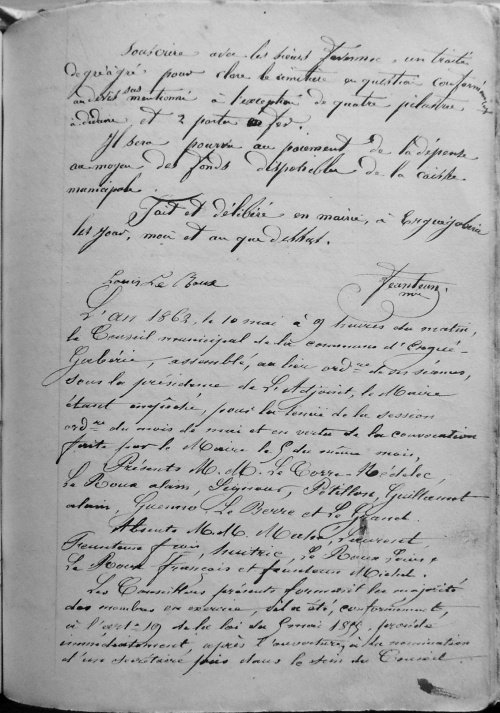 souscrire avec les sieurs , un traité
de gré à gré pour clore le cimetière en question conformément
au devis sus mentionné à l'exception de quatre pilastres
et 2 portes en fer.
Il sera pourvu au paiement de la dépense
au moyen des fonds disponibles de la caisse
municipale.
Fait et délibéré en mairie, à Ergué-gabéric
les jour, mois et an que dessus.
Louis Le Roux
L'an 1862, le 10 mai à 9 heures du matin,
le Conseil municipal de la commune d'Ergué-
Gabéric, assemblé, au lieu ordre de ses séances,
sous la présidence de L'Adjoint, le Maire
étant empêché, pour la tenue de la session
ordre du mois de mai et en vertu de la convocation
faite par le Maire le 5 du même mois,
Présents M.M. Le Corre, Nédelec,
Le Roux alain, Seznec, Pétillon, Guillamot
alain, Guenno Le Berre et Le Grand.
Absents M.M. Mahé, Laurent,
, Le Roux Louis,
Le Roux Français et feunteun Michel.
Les Conseillers présents formant la majorité
des membres en exercice, il a été, conformément,
à l'art. 19 de la loi du 5 mai 1855, procédé
immédiatement, après l'ouverture, à la nomination
d'un secrétaire pris dans le sein du Conseil.